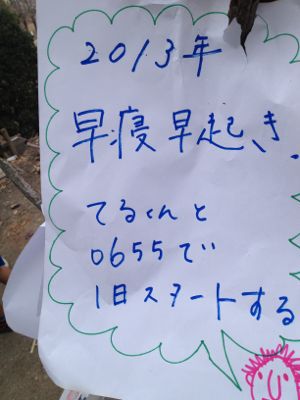 2013年
早寝早起き.
てるくんと
0655で
1日スタートする